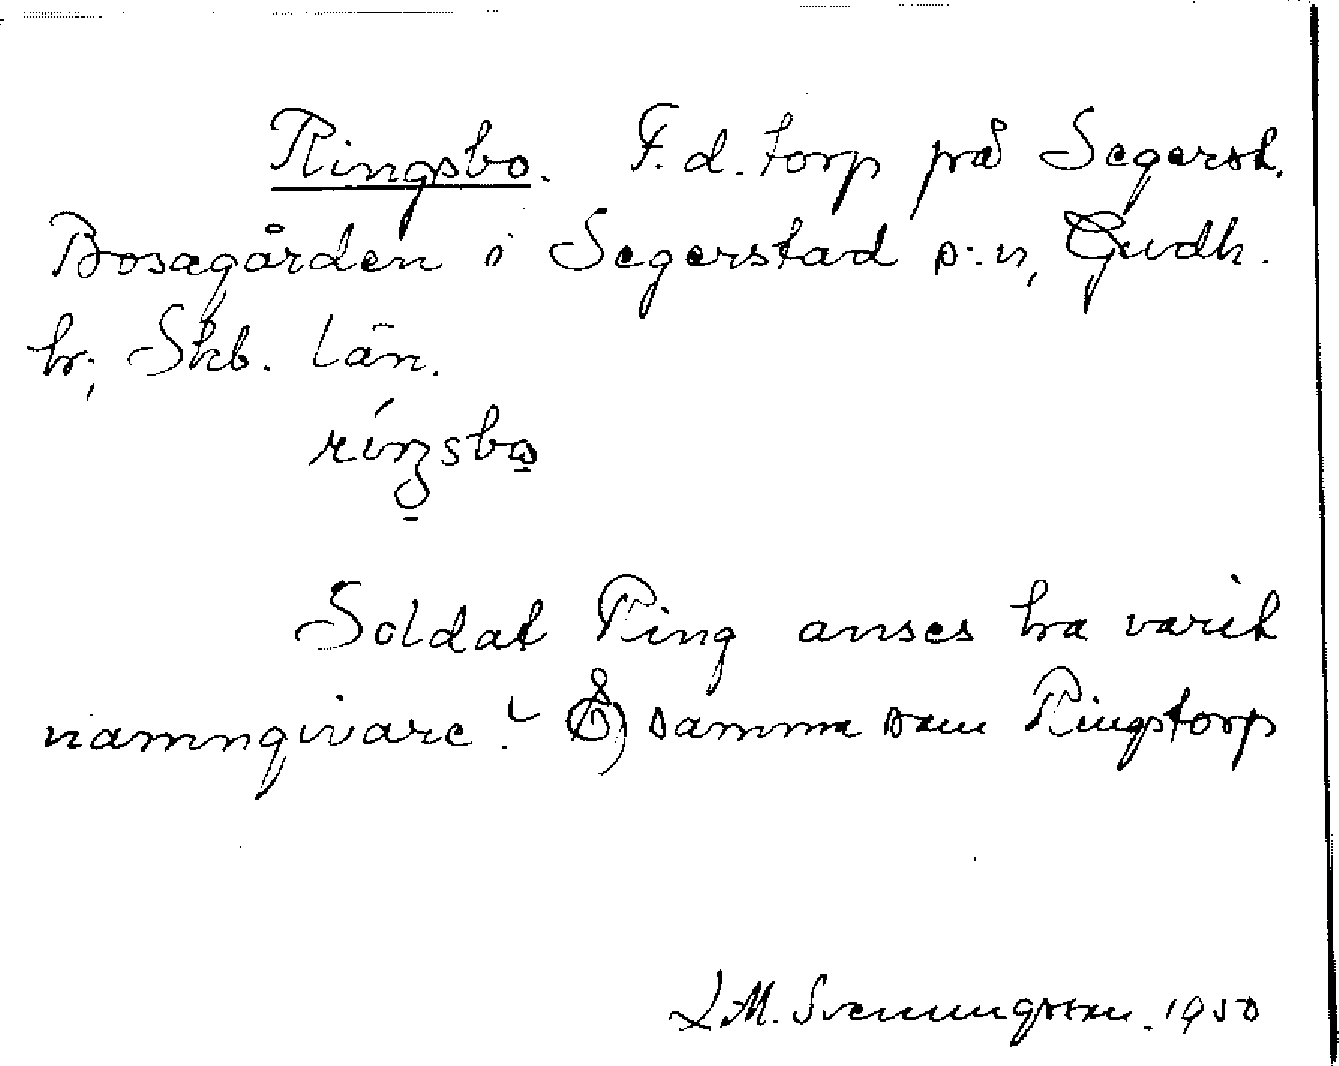 Ringsbo. F.d. torp på Segerst.
Bosagården i Segerstad s:n, Gudh.
hr, Skb. län.
ríŋsbo
Soldat Ring anses ha varit
namngivare. samma som Ringstorp
L M. Svenungsson. 1950